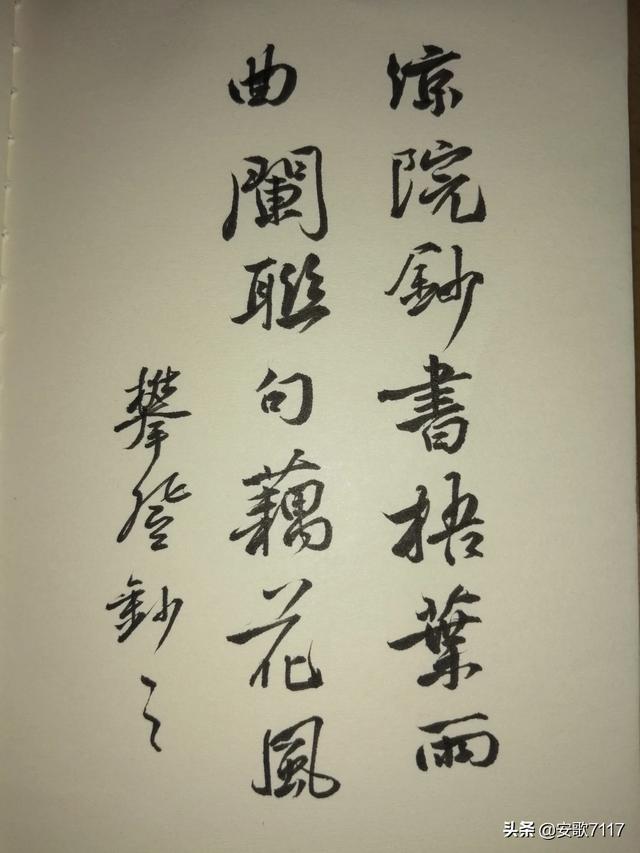 涼院鈔書梧葉雨
曲闌聯句藕花風
攀登鈔之
头条 @安歌7117